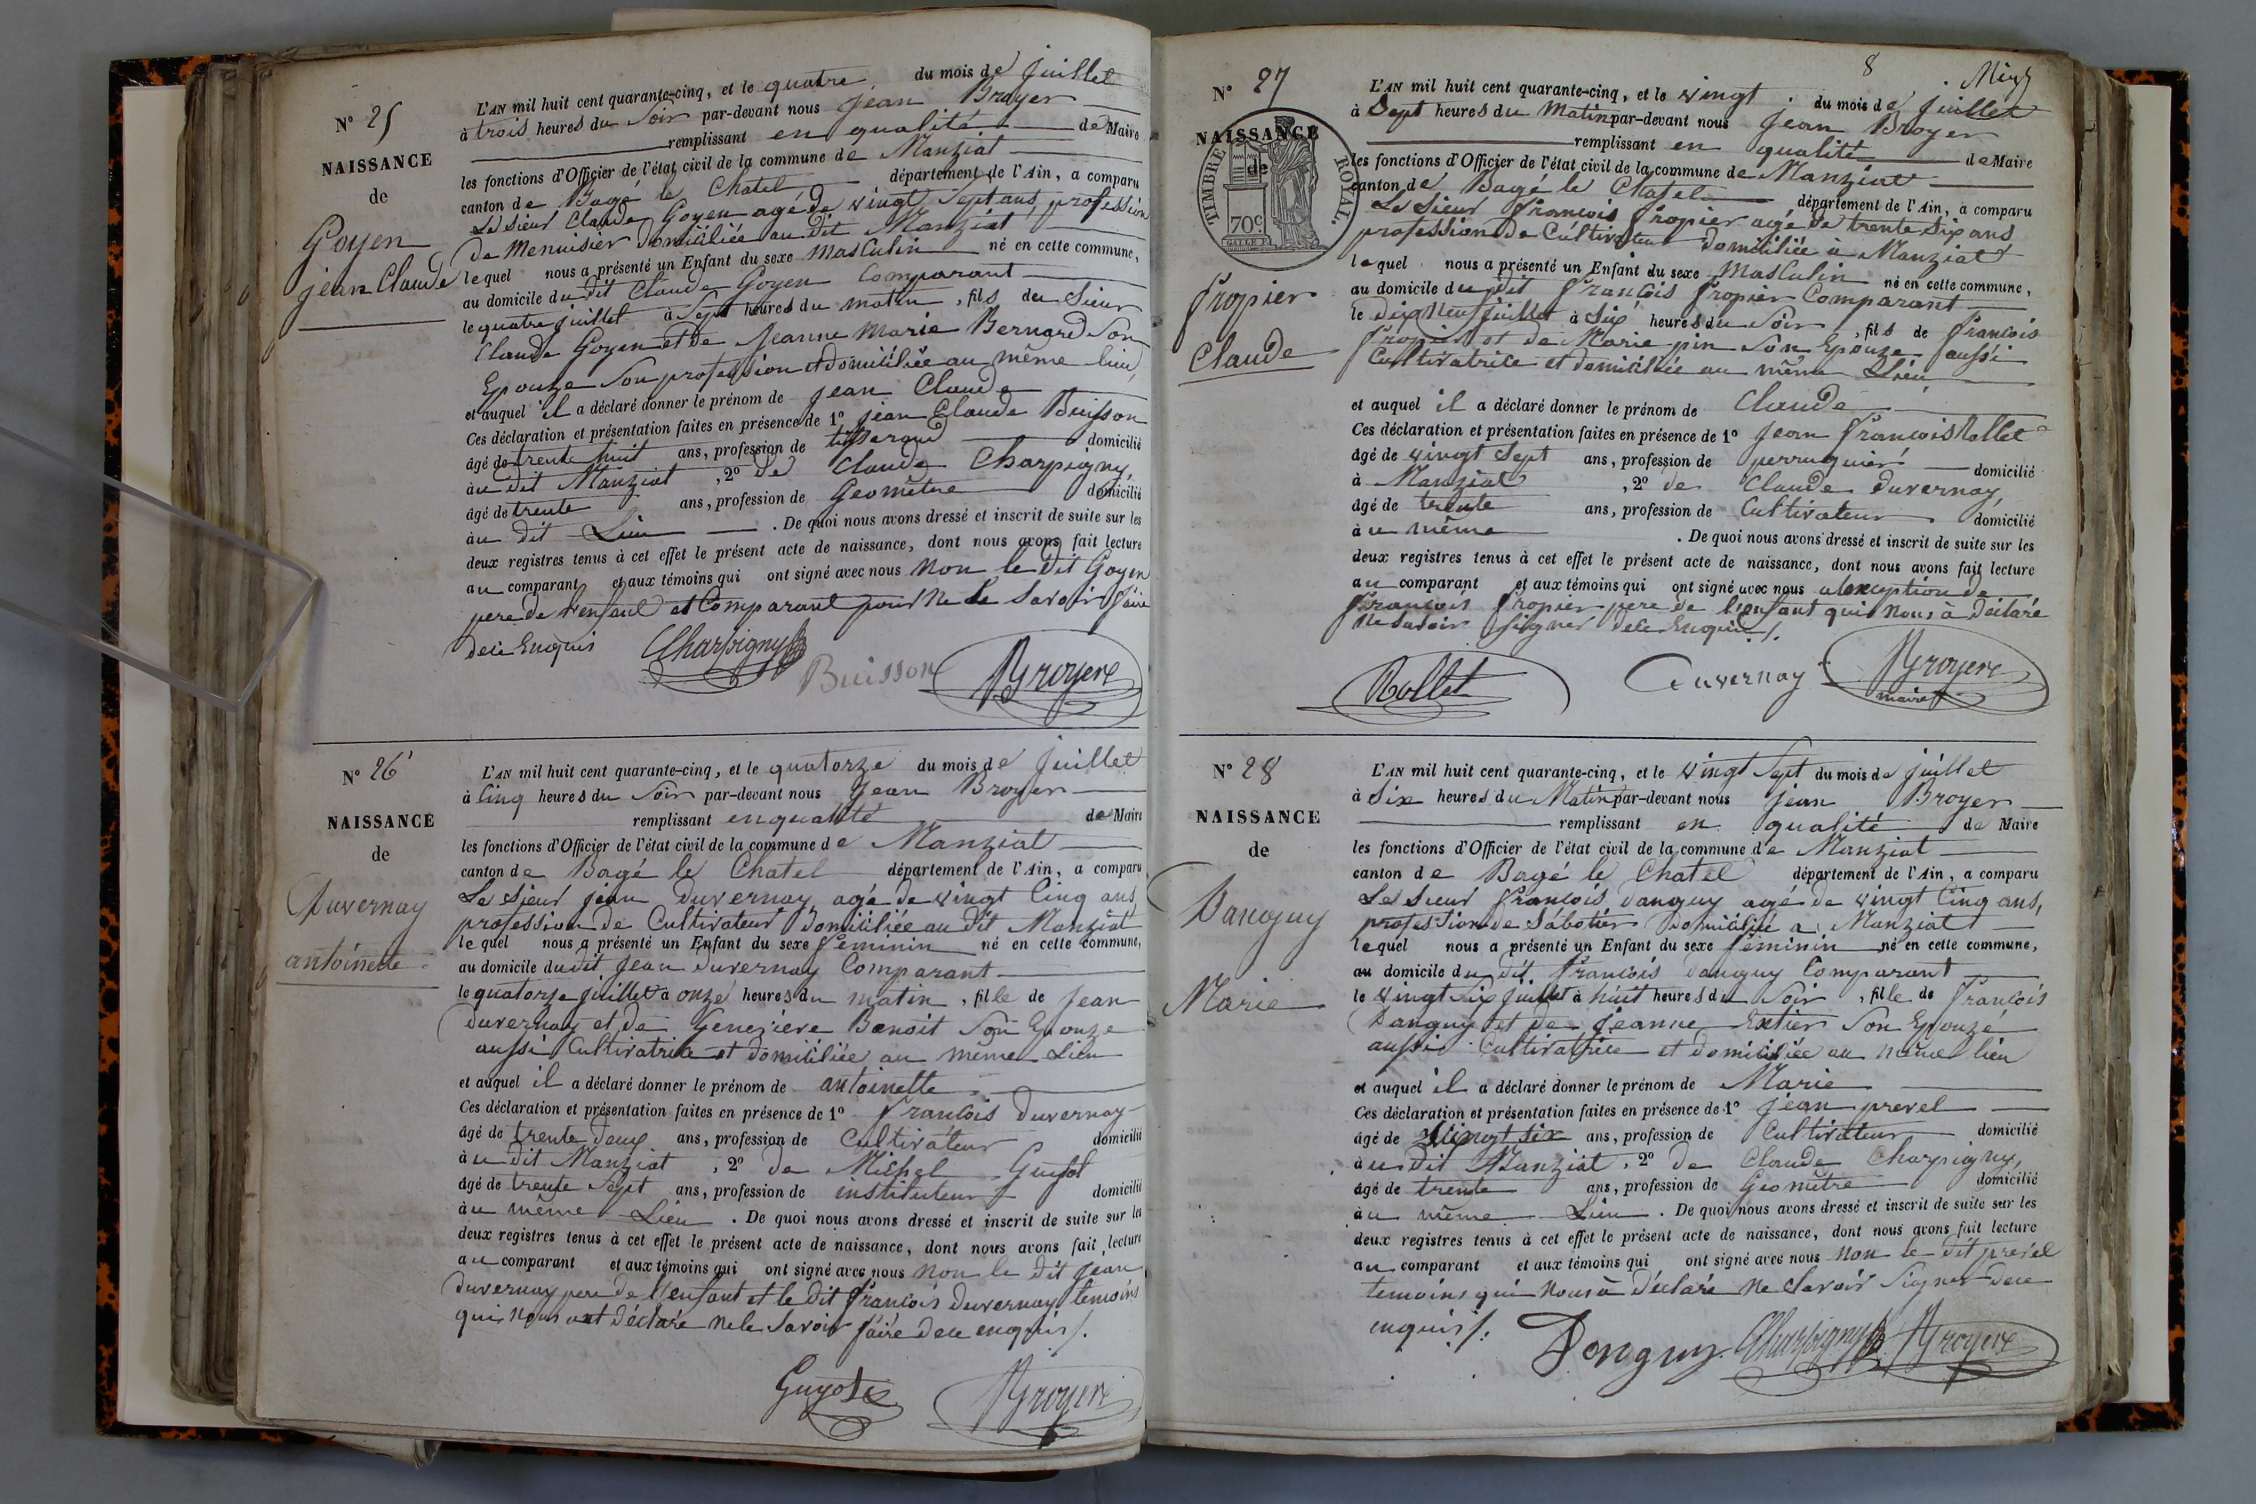 N° 25
NAISSANCE
de
Goyen
jean Claude
L'AN mil huit cent quarante-cinq, et le quatre du mois de juillet
à trois heures du soir par-devant nous jean Broyer
remplissant en qualité de Maire
les fonctions d'Officier de l'état civil de la commune de Manziat
canton de Bagé le Chatel département de l'Ain, a comparu
Le sieur Claude Goyen agé de vingt sept ans, profession
de Menuisier domiciliée au dit Manziat
lequel nous a présenté un Enfant du sexe Masculin né en cette commune,
au domicile du dit Claude Goyen Comparant
le quatre juillet à Sept heures du matin, fils du Sieur
Claude Goyen et de Jeanne Marie Bernard Son
Epouze Son profession et domiciliée au même lieu,
et auquel il a déclaré donner le prénom de jean Claude
Ces déclaration et présentation faites en présence de 1° jean Claude Buisson
âgé de trente huit ans, profession de domicilié
au dit Manziat, 2° de Claude Charpigny,
âgé de trente ans, profession de Geomètre domicilié
au dit Lieu. De quoi nous avons dressé et inscrit de suite sur les
deux registres tenus à cet effet le présent acte de naissance, dont nous avons fait lecture
au comparant et aux témoins qui ont signé avec nous non le dit Goyen
pere de l'enfant et Comparant pour ne le Savoir faire
dece Enquis Charpigny Buisson Broyer
N° 26
NAISSANCE
de
Duvernay
antoinette
L'AN mil huit cent quarante-cinq, et le quatorze du mois de juillet
à Cinq heures du Soir par-devant nous Jean Broyer
remplissant en qualité de Maire
les fonctions d'Officier de l'état civil de la commune de Manziat
canton de Bagé le Chatel département de l'Ain, a comparu
Le sieur jean Duvernay, agé de vingt Cinq ans,
profession de Cultivateur domiciliée au dit Manziat
lequel nous a présenté un Enfant du sexe feminin né en cette commune,
au domicile du dit Jean Duvernay Comparant
le quatorze juillet à onze heures du matin, fille de Jean
Duvernay et de Genevieve Benoit Son Epouze
aussi Cultivatrice et domiciliée au même Lieu
et auquel il a déclaré donner le prénom de antoinette
Ces déclaration et présentation faites en présence de 1° francois Duvernay
âgé de trente deux ans, profession de Cultivateur domicilié
au dit Manziat, 2° de Michel Guyot
âgé de trente Sept ans, profession de instituteur domicilié
au même Lieu. De quoi nous avons dressé et inscrit de suite sur les
deux registres tenus à cet effet le présent acte de naissance, dont nous avons fait lecture
au comparant et aux témoins qui ont signé avec nous non le dit Jean
Duvernay pere de l'enfant et le dit francois Duvernay temoins
qui nous ont déclaré ne le Savoir faire dece enquis /.
Guyot Broyer
8
N° 27
NAISSANCE
de
TIMBRE ROYAL
70c
fropier
Claude
L'AN mil huit cent quarante-cinq, et le vingt du mois de juillet
à Sept heures du Matin par-devant nous jean Broyer
remplissant en qualité de Maire
les fonctions d'Officier de l'état civil de la commune de Manziat
canton de Bagé le Chatel département de l'Ain, a comparu
Le Sieur francois fropier agé de trente Six ans
profession de Cultivateur domiciliée à Manziat
lequel nous a présenté un Enfant du sexe Masculin né en cette commune,
au domicile du dit francois fropier Comparant
le dix Neuf juillet à Six heures du Soir, fils de francois
fropier et de Marie pin Son Epouze aussi
Cultivatrice et domiciliée au même Lieu
et auquel il a déclaré donner le prénom de Claude
Ces déclaration et présentation faites en présence de 1° jean francois Rollet
âgé de vingt Sept ans, profession de perruquier domicilié
à Manziat, 2° de Claude duvernay,
âgé de trente ans, profession de Cultivateur domicilié
au même. De quoi nous avons dressé et inscrit de suite sur les
deux registres tenus à cet effet le présent acte de naissance, dont nous avons fait lecture
au comparant et aux témoins qui ont signé avec nous a lexception de
francois fropier pere de l'enfant qui nous à déclaré
ne Savoir signer dece Enquis /.
Rollet Duvernay Broyer
maire
N° 28
NAISSANCE
de
Danguy
Marie
L'AN mil huit cent quarante-cinq, et le vingt Sept du mois de juillet
à Six heures du Matin par-devant nous jean Broyer
remplissant en qualité de Maire
les fonctions d'Officier de l'état civil de la commune de Manziat
canton de Bagé le Chatel département de l'Ain, a comparu
Le sieur francois danguy agé de vingt Cinq ans,
profession de Sabotier domiciliée a Manziat
lequel nous a présenté un Enfant du sexe féminin né en cette commune,
au domicile du dit francois danguy Comparant
le vingt Six juillet à huit heures du Soir, fille de francois
Danguy et de jeanne Son Epouze
aussi Cultivatrice et domiciliée au même lieu
et auquel il a déclaré donner le prénom de Marie
Ces déclaration et présentation faites en présence de 1° jean prevel
âgé de vingt six ans, profession de Cultivateur domicilié
au dit Manziat, 2° de Claude Charpigny,
âgé de trente ans, profession de Geomètre domicilié
au même Lieu. De quoi nous avons dressé et inscrit de suite sur les
deux registres tenus à cet effet le présent acte de naissance, dont nous avons fait lecture
au comparant et aux témoins qui ont signé avec nous non le dit prevel
temoins qui nous à déclaré ne Savoir Signer dece
enquis /. Donguy Charpigny Broyer